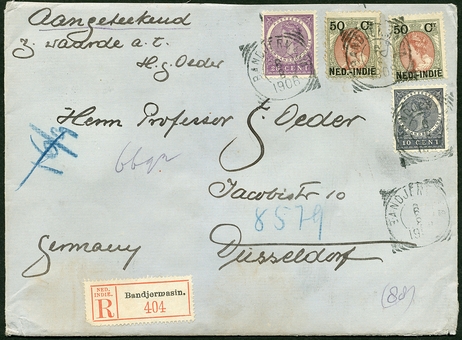 Aangeteekend
z. waarde a. t.
H. g. Oeder
20 CENT
50 Ct.
NED.-INDIE
50 Ct.
NED.-INDIE
10 CENT
BANDJERM
1908
Herrn Professor
G. Oeder
Jacobistr 10
8579
Germany
Düsseldorf
BANDJER
NED. INDIË.
R
Bandjermasin.
404
(88)